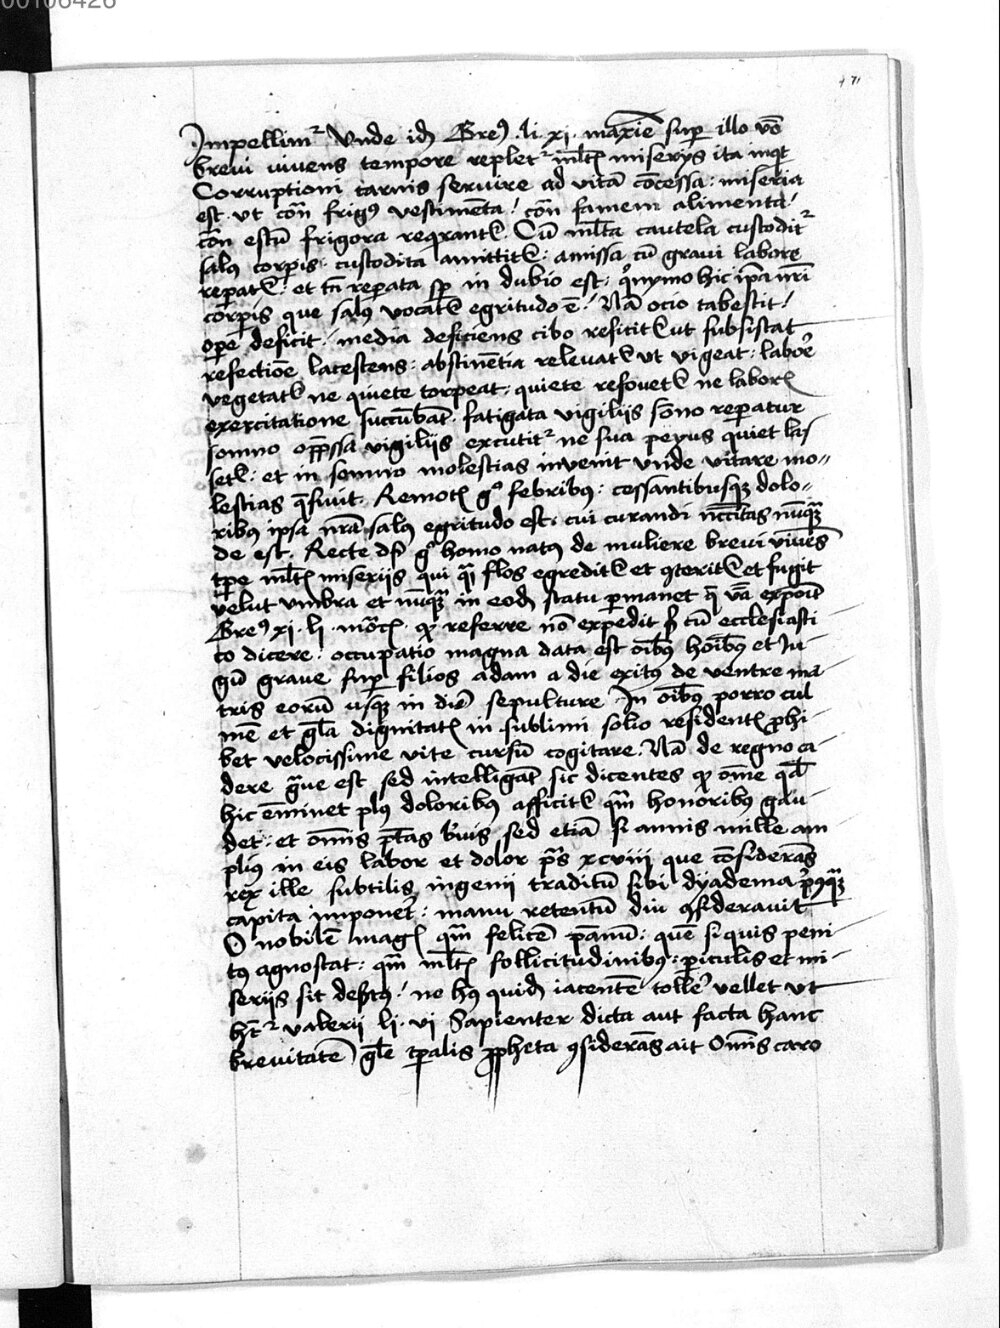 00106426
471
Impellimꝰ Unde idē Greꝰ li xi. maxīe sup̄ illo vō
brevi vivens tempore repletꝰ ml̄tꝭ miserijs ita inqt
Corruptioni carnis servire ad vitā cōcessa: miseria
est. ut cōn̄ frigꝰ vestimēta / cōn̄ famem alimenta /
cōn̄ estū frigora reqrantꝰ. Cū ml̄ta cautela custoditꝰ
salꝰ corpis: custodita amittitꝰ: amissa cū gravi labore
repatꝰ: et tn̄ reparata sp̄ in dubio est: qͦnymo hic ip̄a nr̄i
corpis que salꝰ vocatꝰ egritudo ē / Nā ocio tabescit /
ope deficit / media deficiens cibo reficitꝰ ut subsistat
refectiōe lacescens: abstinētia relevatꝰ ut vigeat: labore
vegetatꝰ ne quiete torpeat: quiete refovetꝰ ne laborꝭ
exercitatione succūbat. fatigata vigiliis sōno reparatur
somno opp̄ssa vigiliis excutitꝰ ne sua peyus quiet las
setꝰ: et in somno molestias invenit unde vitare mo
lestias q̄sivit. Remotꝭ gͦ febribꝰ: cessantibusqꝫ dolo
ribꝰ ipsa nr̄a salꝰ egritudo est: cui curandi nccītas nūqꝫ
de est. Recte df̄ gͦ homo natꝰ de muliere brevi vivēs
tp̄e ml̄tꝭ miseriis qui qi flos egreditꝰ et ꝯteritꝰ et fugit
velut umbra et nūqꝫ in eodē statu p̄manet q̄ vā expōit
Greꝰ xi. li. mōrꝭ. qͦ referre nō expedit sꝫ tū ecclesiasti
co dicere: occupatio magna data est oībꝰ hoībꝰ et Iu
gū grave sup̄ filios adam a die exitꝰ de ventre ma
tris eorū usqꝫ in diē sepulture In oībꝰ porro cul
mē et gl̄a dignitatꝭ in sublimi solio residentꝭ ꝓhi
bet velocissime vite cursū cogitare. Nā de regno ca
dere gͣve est sed intelligāt sic dicentes qͦ ōme qd̄
hic ēminet plꝰ doloribꝰ afficitꝰ qm̄ honoribꝰ gau
det: et om̄is pt̄as bͬvis sed etiā si annis mille am
pliꝰ in eis labor et dolor ps̄ xcviii que cōsiderās
rex ille subtilis ingenii traditū sibi dyadema pͥꝰqꝫ
capita imponet̄: manu retentū diu ꝯsideravit
O nobilē magꝭ qm̄ felicē pānū: quē si quis peni
tꝰ agnoscat: qm̄ ml̄tꝭ sollicitudinibꝰ: periculis et mi
seriis sit refertꝰ / ne hͦ quidē iacentē tollē vellet ut
hꝛ̄ valerii li. vi Sapienter dicta aut facta hanc
brevitatē gl̄e tp̄alis ꝓpheta ꝯsiderās ait Om̄is caro